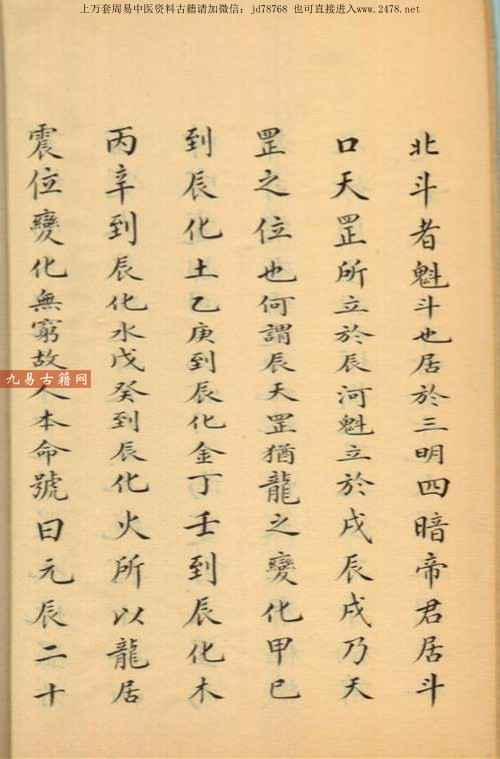 上万套周易中医资料古籍请加微信：jd78768 也可直接进入www.2478.net
北斗者魁斗也居於三明四暗帝君居斗
口天罡所立於辰河魁立於戌辰戌乃天
罡之位也何謂辰天罡猶龍之變化甲巳
到辰化土乙庚到辰化金丁壬到辰化木
丙辛到辰化水戊癸到辰化火所以龍居
震位變化無窮故人本命號曰元辰二十
九易古籍网